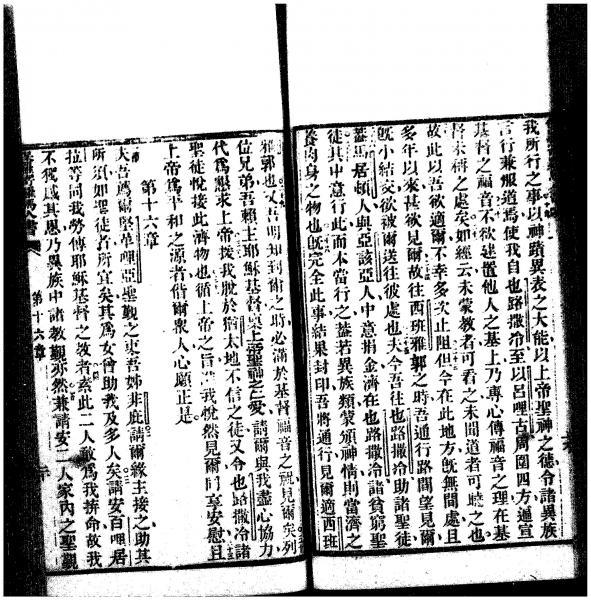 我所行之事以神蹟異表之大能以上帝聖神之德令諸異族
言行兼服道焉使我自也路撒冷至以呂哩古周圍四方遍宣
基督之福音不欲建置他人之基上乃專心傳福音之理在基
督未稱之處矣如經云未蒙教者可看之未聞道者可曉之也
故此以吾欲適爾不幸多次止阻但今在此地方旣無間處且
多年以來甚欲見爾故往西班雅郭之時吾通行路間望見爾
旣小結交欲被爾送往彼處也夫今吾往也路撒冷助諸聖徒
蓋馬居頓人與亞該亞人中意捐金濟在也路撒冷諸貧窮聖
徒其中意行此而本當行之蓋若異族類蒙頒神情則當濟之
養肉身之物也旣完全此事結果封印吾將通行見爾適西班
雅郭也又吾明知到爾之時必滿於基督福音之祝見爾矣列
位兄弟吾賴主耶穌基督與上帝聖神之愛請爾與我盡心協力
代爲懇求上帝援我脫於猶太地不信之徒又令也路撒冷諸
聖徒悅接此濟物也循上帝之旨 我悅然見爾們享安慰且
上帝爲平和之源者偕爾眾人心願正是
第十六章
夫吾薦爾堅革哩亞聖觀之吏吾姊非庇請爾緣主接之助其
所須如聖徒者所宜矣其爲女曾助我及多人矣請安百哩居
拉等同我勞傳耶穌基督之教者爲此二人敢爲我拚命故我
不獨感其恩乃異族中諸教觀亦然兼請安二人家內之聖觀
人書
第十六章